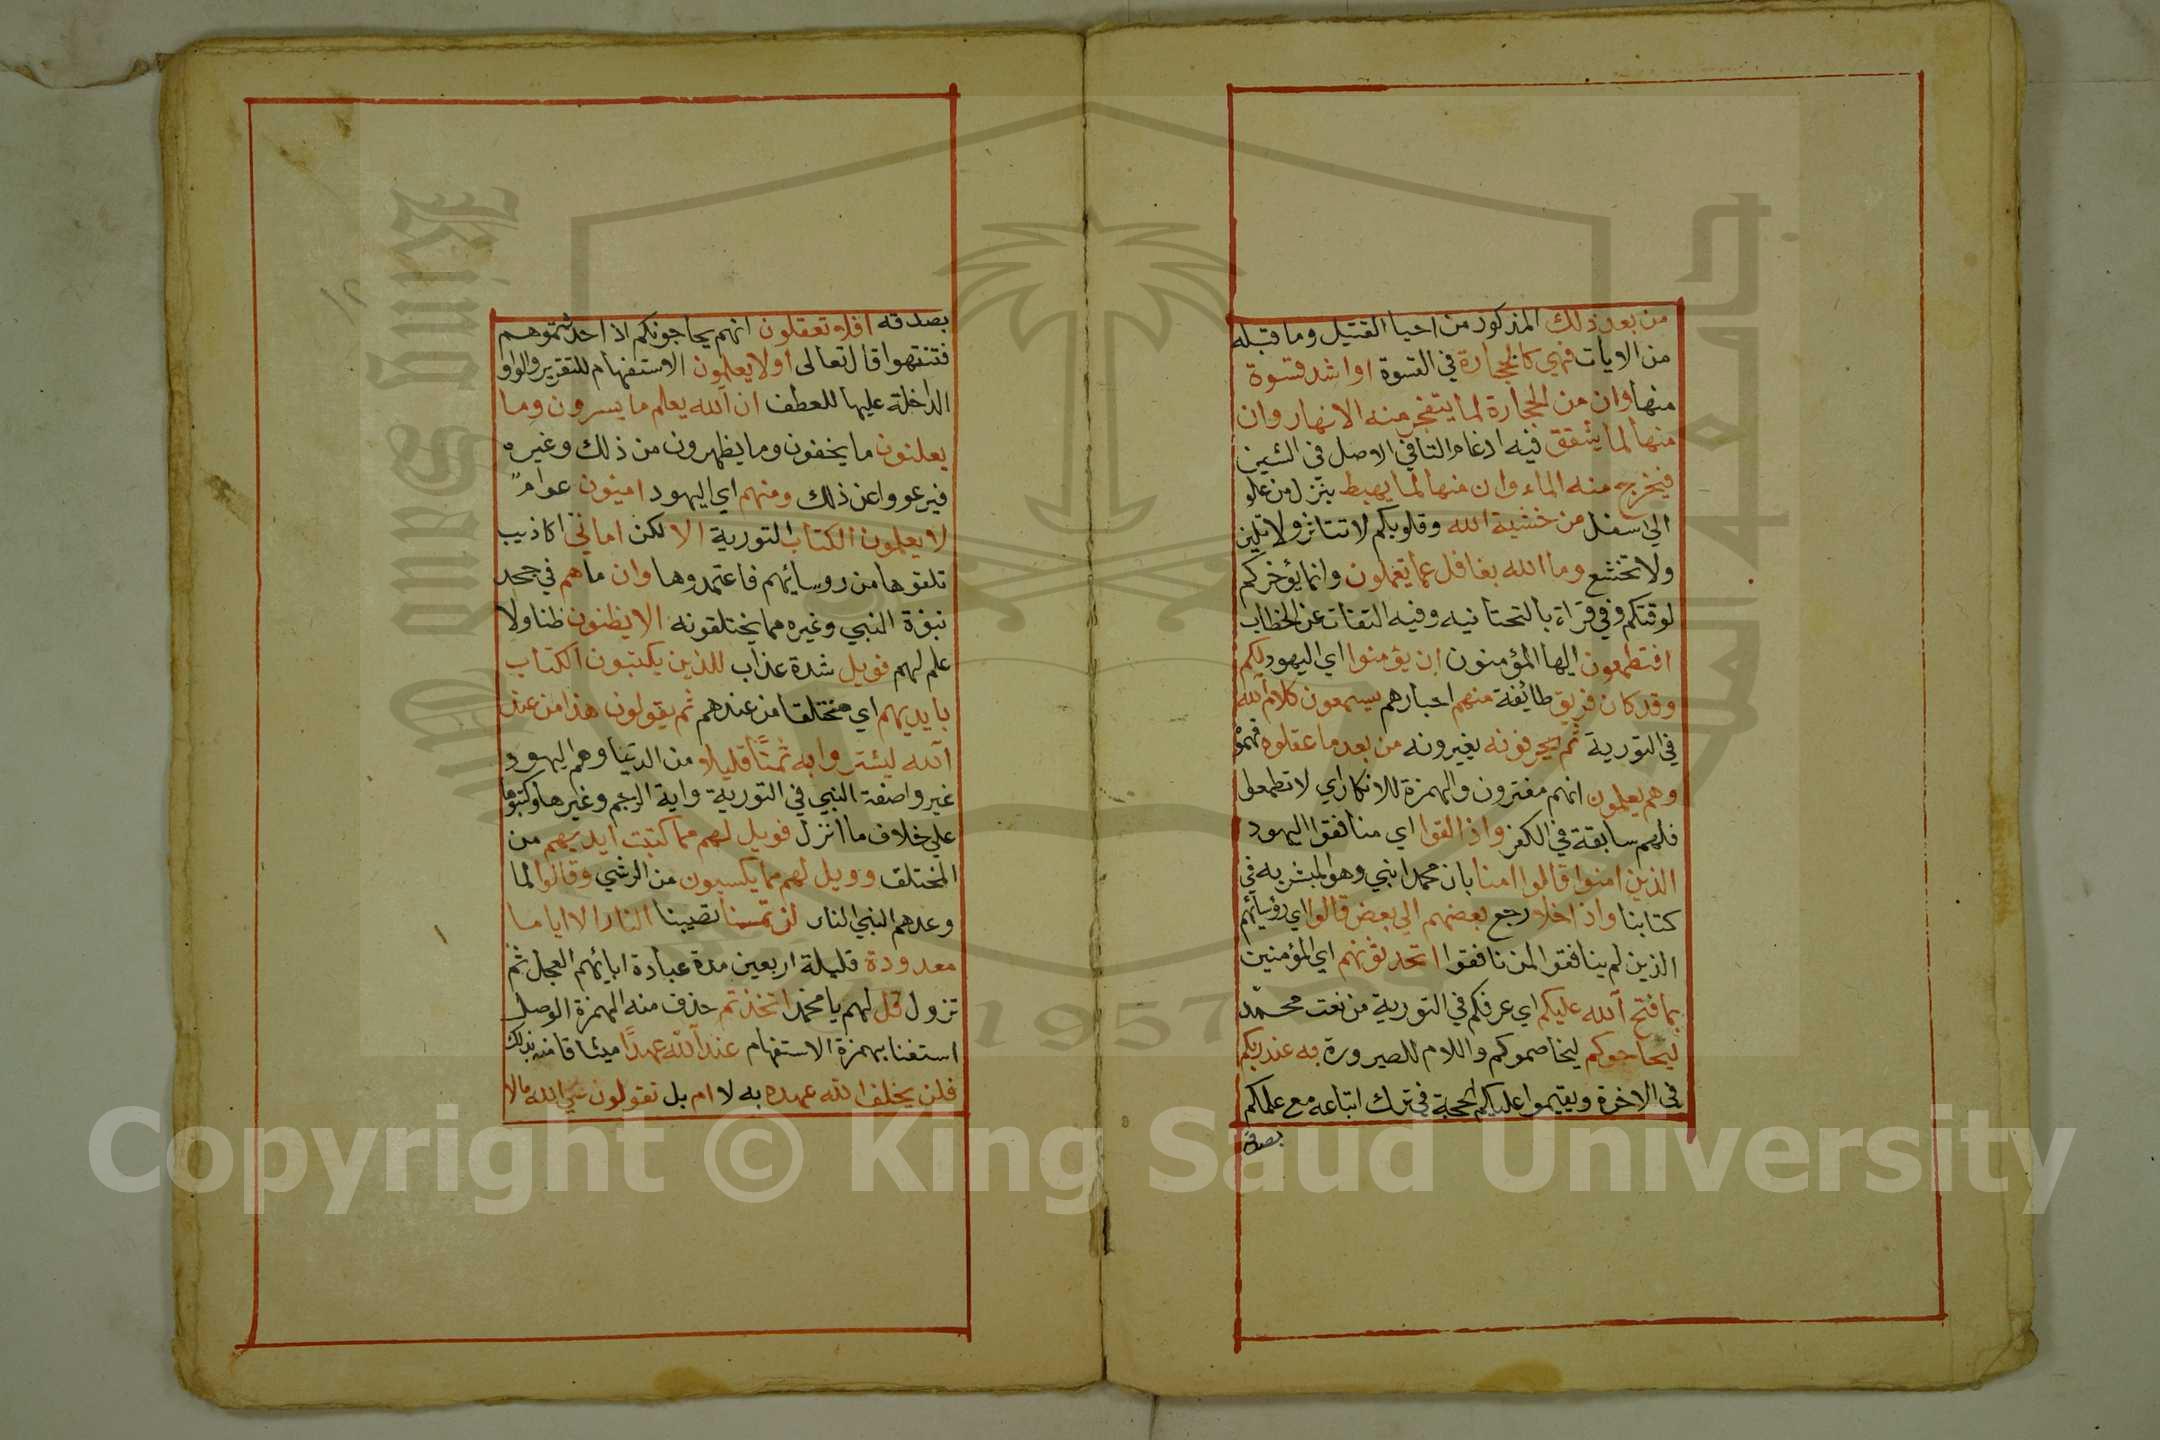 من بعد ذلك المذكور من احيا القتيل وما قبله
من الايات فهي كالحجارة في القسوة او اشد قسوة
منها وان من الحجارة لما يتفجر منه الانهار وان
منها لما يشقق فيه ادغام التا في الاصل في الشين
فيخرج منه الماء وان منها لما يهبط ينزل من علو
الي اسفل من خشية الله وقلوبكم لا تتاثر ولا تلين
ولا تخشع وما الله بغافل عما تعملون وانما يؤخركم
لوقتكم وفي قراءة بالتحتانيه وفيه التفات عن الخطاب
افتطمعون ايها المؤمنون ان يؤمنوا اي اليهود لكم
وقد كان فريق طائفة منهم احبارهم يسمعون كلام الله
في التورية ثم يحرفونه يغيرونه من بعد ما عقلوه فهموه
وهم يعلمون انهم مفترون والهمزة للانكار اي لا تطمعوا
فلهم سابقة في الكفر واذا لقوا اي منافقوا اليهود
الذين امنوا قالوا امنا بان محمدا نبي وهو المبشر به في
كتابنا واذا خلا رجع بعضهم الي بعض قالوا اي رؤسائهم
الذين لم ينافقوا لمن نافقوا اتحدثونهم اي المؤمنين
بما فتح الله عليكم اي عرفكم في التورية من نعت محمد
ليحاجوكم ليخاصموكم واللام للصيرورة به عند ربكم
في الاخرة ويقيموا عليكم الحجة في ترك اتباعه مع علمكم
بصدقه
بصدقه افلا تعقلون انهم يحاجونكم اذا حدثتموهم
فتنتهوا قال تعالى اولا يعلمون الاستفهام للتقرير والواو
الداخلة عليها للعطف ان الله يعلم ما يسرون وما
يعلنون ما يخفون وما يظهرون من ذلك وغيره
فيرعووا عن ذلك ومنهم اي اليهود اميون عوام
لا يعلمون الكتاب التورية الا لكن اماني اكاذيب
تلقوها من روسائهم فاعتمدوها وان ما هم في جحد
نبوة النبي وغيره مما يختلقونه الا يظنون ظنا ولا
علم لهم فويل شدة عذاب للذين يكتبون الكتاب
بايديهم اي مختلقا من عندهم ثم يقولون هذا من عند
الله ليشتروا به ثمنا قليلا من الدنيا وهم اليهود
غيروا صفة النبي في التورية واية الرجم وغيرها وكتبوها
علي خلاف ما انزل فويل لهم مما كتبت ايديهم من
المختلق وويل لهم مما يكسبون من الرشي وقالوا لما
وعدهم النبي النار لن تمسنا تصيبنا النار الا اياما
معدودة قليلة اربعين مدة عبادة ابائهم العجل ثم
تزول قل لهم يا محمد اتخذتم حذف منه الهمزة الوصل
استغنا بهمزة الاستفهام عند الله عهدًا ميثاقا منه بذلك
فلن يخلف الله عهده به لا ام بل تقولون علي الله ما لا
Copyright © King Saud University
King Saud University
جامعة الملك سعود
1957